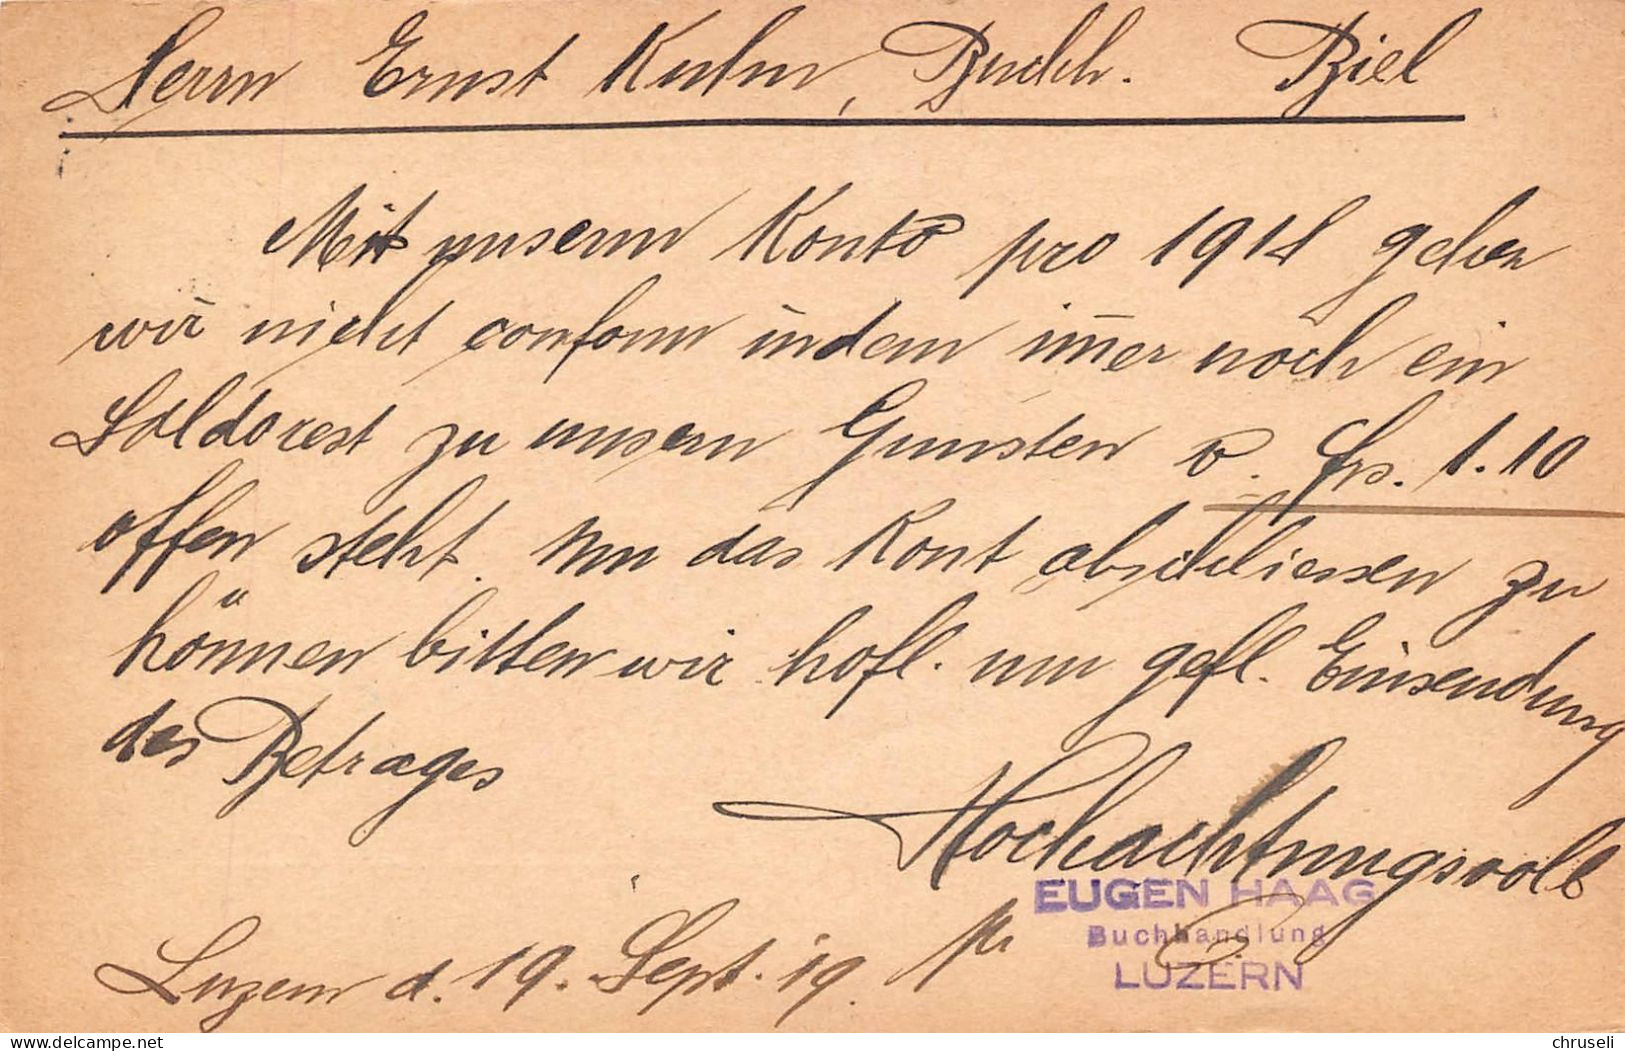 Herrn Ernst Kuhn, Buchh. Biel
Mit unserm Konto pro 1918 gehen
wir nicht conform indem im̅er noch ein
Saldorest zu unsern Gunsten v. frs. 1.10
offen steht. Um das Kont abschliessen zu
können bitten wir höfl. um gefl. Einsendung
des Betrages
Hochachtungsvoll
Luzern d. 19. Sept. 19. pr
EUGEN HAAG
Buchhandlung
LUZERN
www.delcampe.net
chruseli